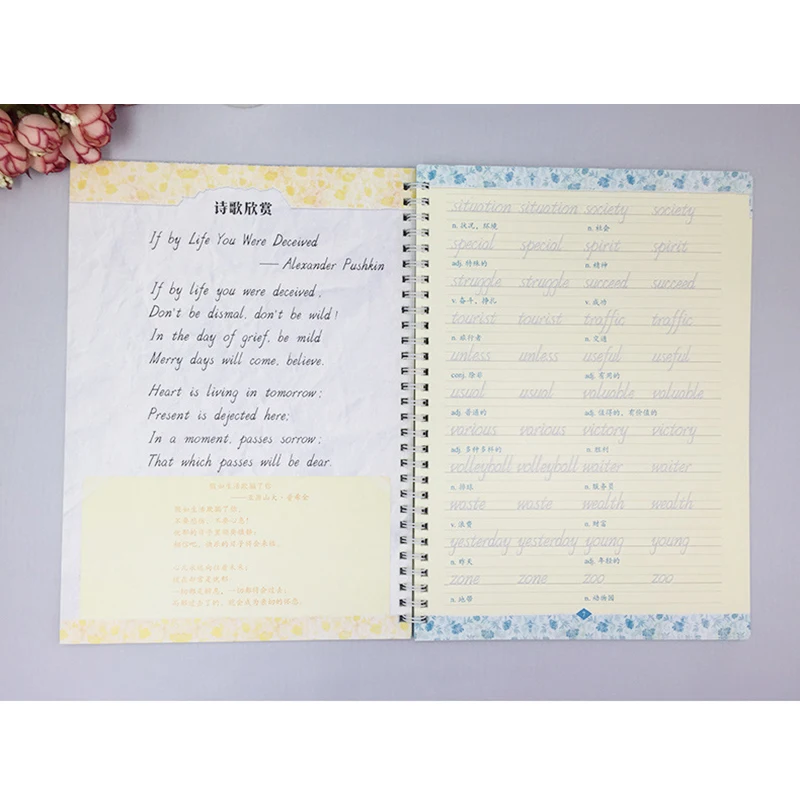 诗歌欣赏
If by Life You Were Deceived
— Alexander Pushkin
If by life you were deceived,
Don't be dismal, don't be wild!
In the day of grief, be mild
Merry days will come, believe.
Heart is living in tomorrow;
Present is dejected here;
In a moment, passes sorrow;
That which passes will be dear.
假如生活欺骗了你
——亚历山大·普希金
假如生活欺骗了你,
不要悲伤, 不要心急!
situation situation society society
n. 状况, 环境 n. 社会
special special spirit spirit
adj. 特殊的 n. 精神
struggle struggle succeed succeed
v. 奋斗, 挣扎 v. 成功
tourist tourist traffic traffic
n. 旅行者 n. 交通
unless unless useful useful
conj. 除非 adj. 有用的
usual usual valuable valuable
adj. 普通的 adj. 值得的, 有价值的
various various victory victory
adj. 多种多样的 n. 胜利
volleyball volleyball waiter waiter
n. 排球 n. 服务员
waste waste wealth wealth
v. 浪费 n. 财富
yesterday yesterday young young
n. 昨天 adj. 年轻的
zone zone zoo zoo
n. 地带 n. 动物园